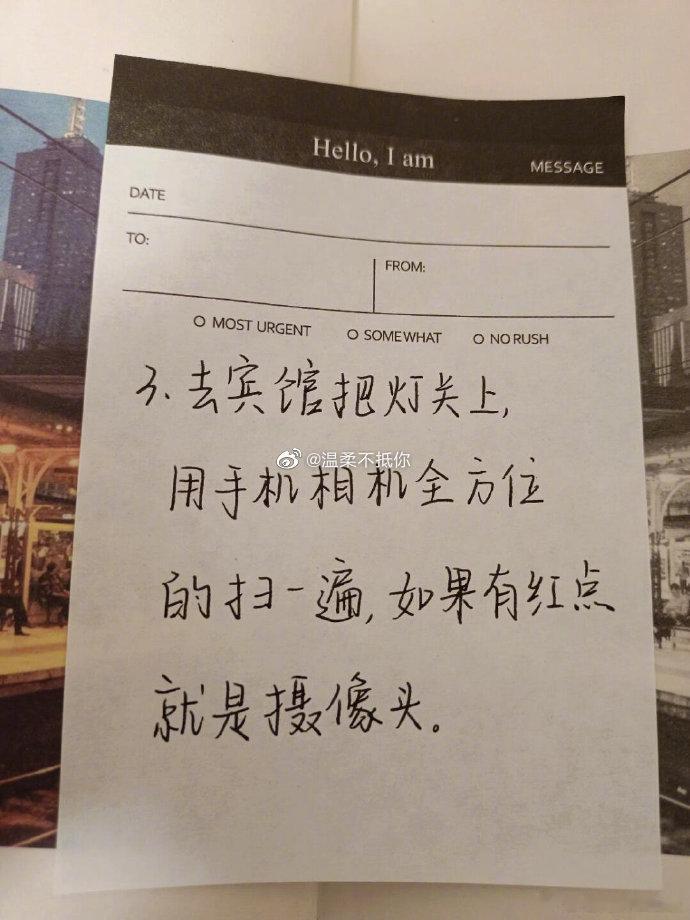 Hello, I am
MESSAGE
DATE
TO:
FROM:
MOST URGENT
SOMEWHAT
NO RUSH
3.去宾馆把灯关上,
@温柔不抵你
用手机相机全方位
的扫一遍,如果有红点
就是摄像头。